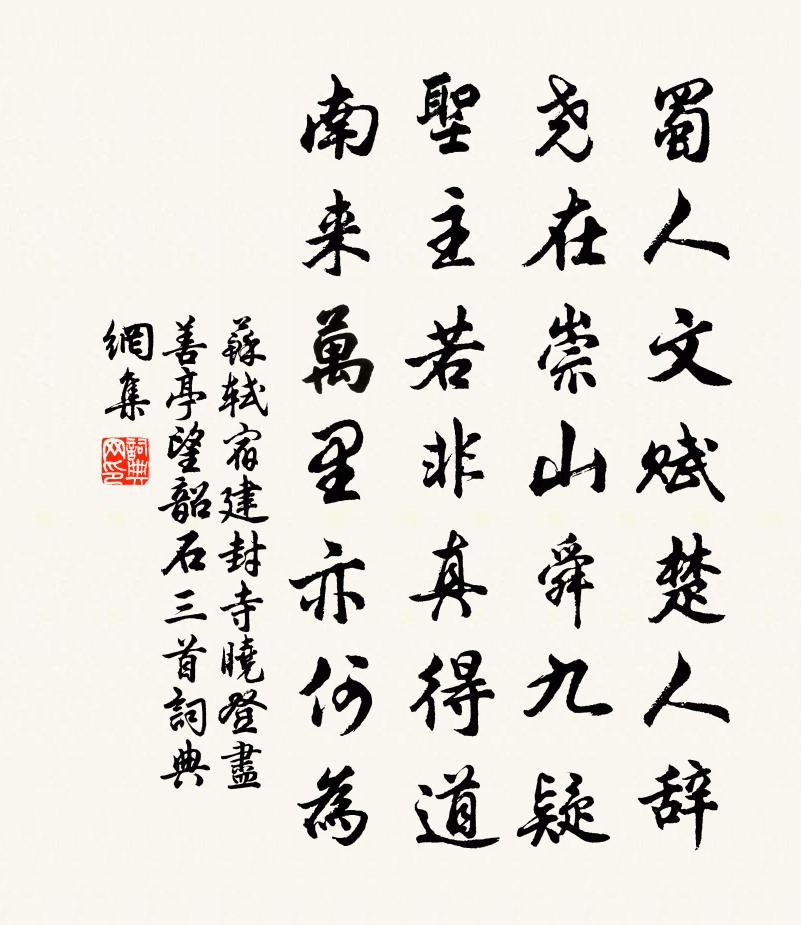 蜀人文赋楚人辞
尧在崇山舜九疑
聖主若非真得道
南来萬里亦何為
蘇軾宿建封寺曉登盡
善亭望韶石三首詞典
網集
詞典
网印